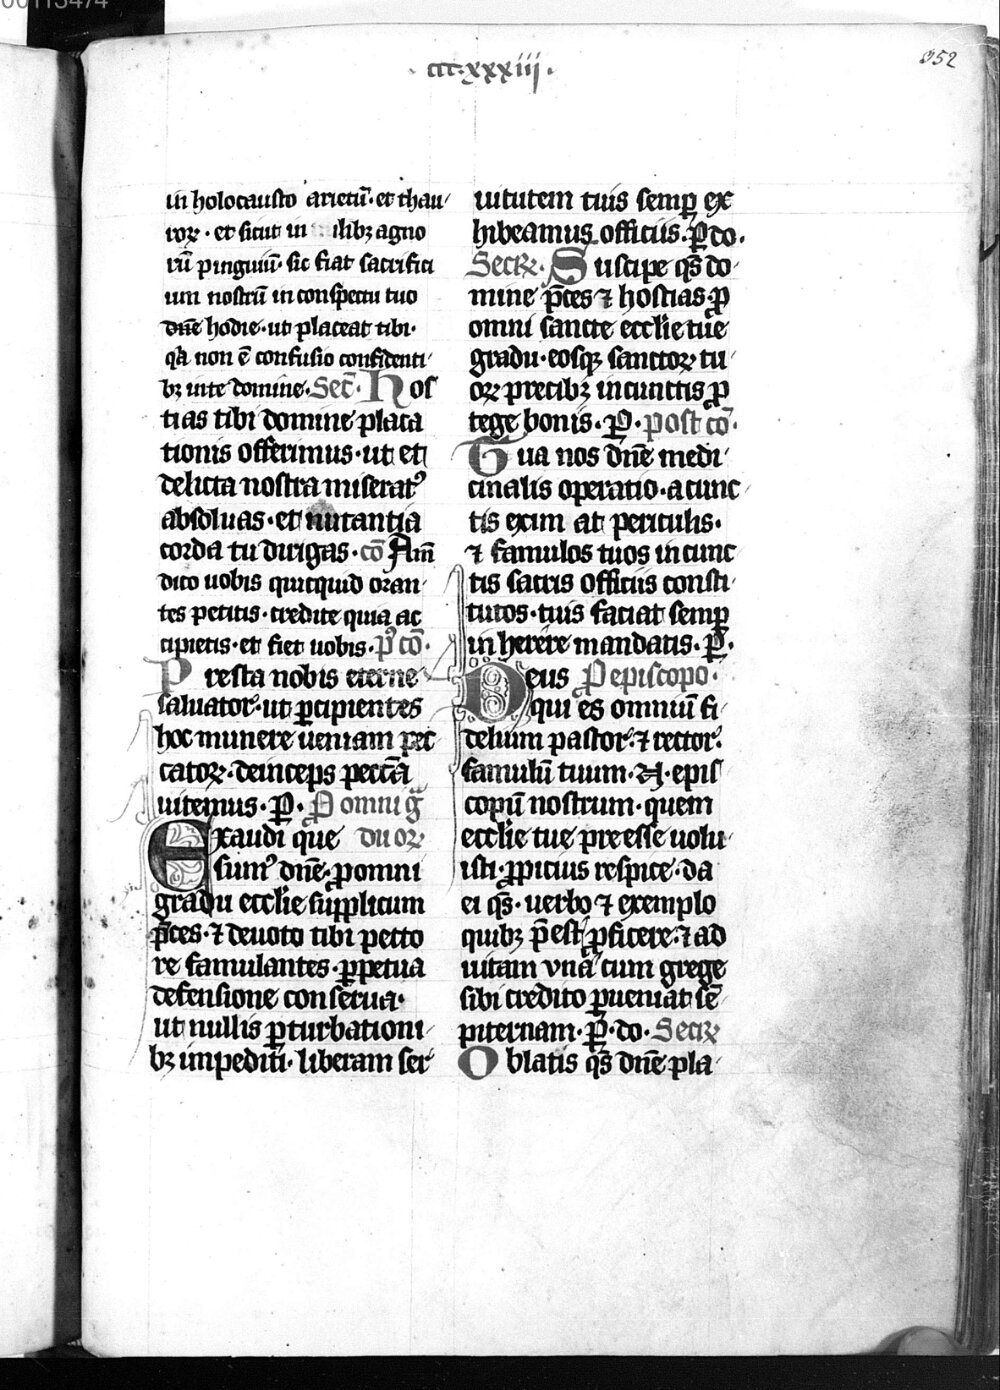 00113474
ccc·xxxiii·
352
in holocausto arietū·et thau
roꝝ·et sicut in milibꝫ agno
rū pinguiū·sic fiat sacrifici
um nostrū in conspectu tuo
dn̄e hodie·ut placeat tibi·
qa non ē confusio confidenti
bꝫ in te domine·Sec̄·Hos
tias tibi domine placa
tionis offerimus·ut et
delicta nostra miseratꝰ
absoluas·et nutantia
corda tu dirigas·cō Am̄
dico uobis quicquid oran
tes petitis·credite quia ac
cipietis·et fiet uobis·pꝰ cō·
Presta nobis eterne
saluator·ut ꝑcipientes
hoc munere ueniam pec
catoꝝ·deinceps peccāta
uitemus·P̲·P omni g̃
Exaudi que duoꝝ
sumꝰ dn̄e·ꝓ omni
gradu ecclie supplicum
p̄ces·⁊ deuoto tibi pecto
re famulantes·ꝑpetua
defensione conserua·
ut nullis ꝑturbationi
bꝫ impediti·liberam ser
uitutem tuis semꝑ ex
hibeamus officiis·P̲ do·
Secꝝ·Suscipe qs̄ do
mine p̄ces ⁊ hostias·ꝓ
omni sancte ecclie tue
gradu·eosqꝫ sanctoꝝ tu
oꝝ precibꝫ in cunctis ꝓ
tege bonis·P̲·post cō·
Tua nos dn̄e medi
cinalis operatio·a cunc
tis exim at periculis·
⁊ famulos tuos in cunc
tis sacris officiis consti
tutos·tuis faciat semꝑ
in herēre mandatis·P̲·
Deus P episcopo·
qui es omniū fi
delium pastor·⁊ rector·
famulū tuum·N·epis
copū nostrum·quem
ecclie tue preesse uolu
isti·ꝓpicius respice·da
ei qs̄·uerbo ⁊ exemplo
quibꝫ p̄est ꝓficere·⁊ ad
uitam vna cum grege
sibi credito ꝑueniat sē
piternam·P̲·do·Secꝝ
Oblatis qs̄ dn̄e pla